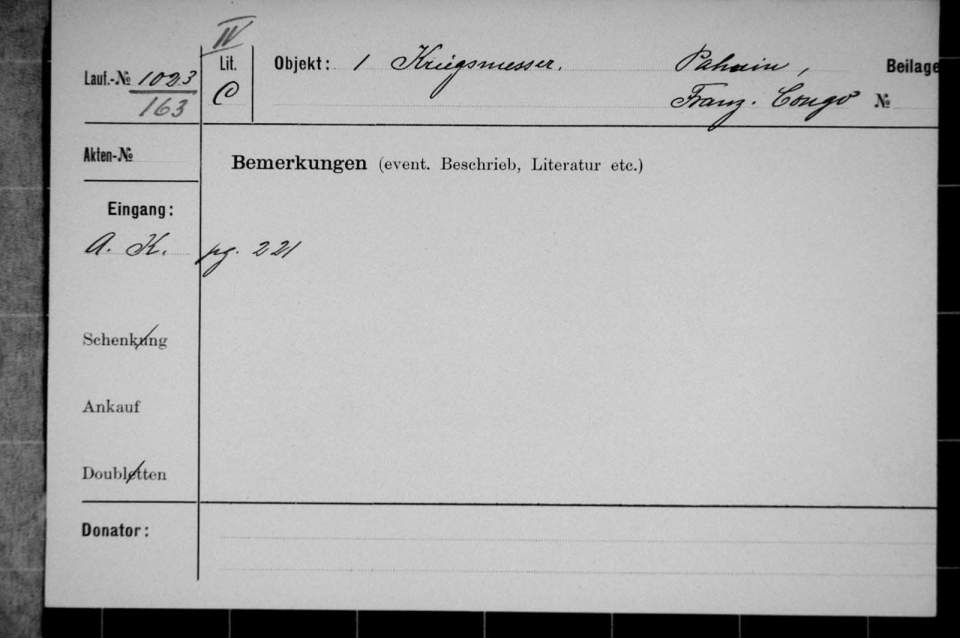 IV
Lauf.-№ 1023 Lit. Objekt: 1 Kriegsmesser. Pahuin, Beilage
163 C Franz. Congo №
Akten-№
Bemerkungen (event. Beschrieb, Literatur etc.)
Eingang:
A. K. pg. 221
Schenkung
Ankauf
Doubletten
Donator: